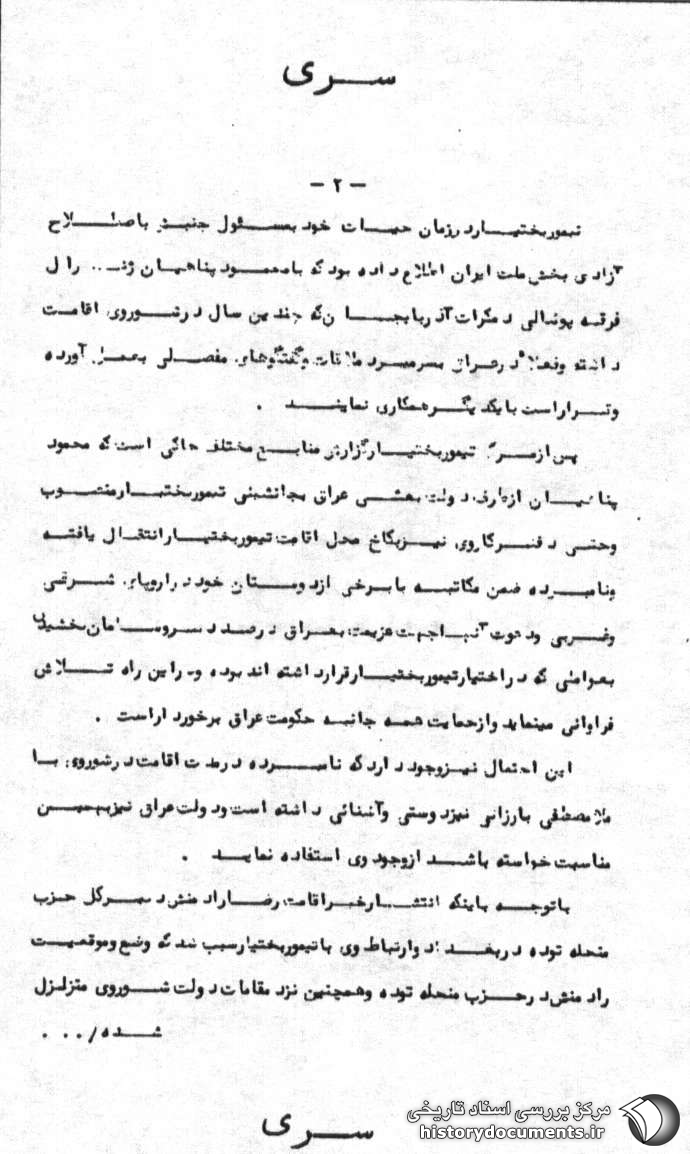 سری
- ۲ -
تیمور بختیار در زمان حیات خود بمسئول جنبش باصطلاح
آزادی بخش ملت ایران اطلاع داده بود که با محمود پناهیان ژنـ.. رال
فرقه پوشالی دمکرات آذربایجان که چندین سال در شوروی اقامت
داشته و فعلا در عراق بسر میبرد ملاقات و گفتگوهای مفصلی بعمل آورده
و قرار است با یکدیگر همکاری نمایند .
پس از مرگ تیمور بختیار گزارش منابع مختلف حاکی است که محمود
پناهیان از طرف دولت بعثی عراق بجانشینی تیمور بختیار منصوب
و حتی دفتر کار وی نیز بکاخ محل اقامت تیمور بختیار انتقال یافته
و نامبرده ضمن مکاتبه با برخی از دوستان خود در اروپای شرقی
و غربی و دعوت آنها جهت عزیمت بعراق در صدد سر و سامان بخشیدن
بعواملی که در اختیار تیمور بختیار قرار داشته اند بوده و در این راه تلاش
فراوانی مینماید و از حمایت همه جانبه حکومت عراق برخوردار است .
این احتمال نیز وجود دارد که نامبرده در مدت اقامت در شوروی با
ملا مصطفی بارزانی نیز دوستی و آشنائی داشته است و دولت عراق نیز بهمین
مناسبت خواسته باشد از وجود وی استفاده نماید .
با توجه باینکه انتشار خبر اقامت رضا رادمنش دبیر کل حزب
منحله توده در بغداد و ارتباط وی با تیمور بختیار سبب شد که وضع و موقعیت
رادمنش در حزب منحله توده و همچنین نزد مقامات دولت شوروی متزلزل
شده / . . .
سری
مرکز بررسی اسناد تاریخی
historydocuments.ir